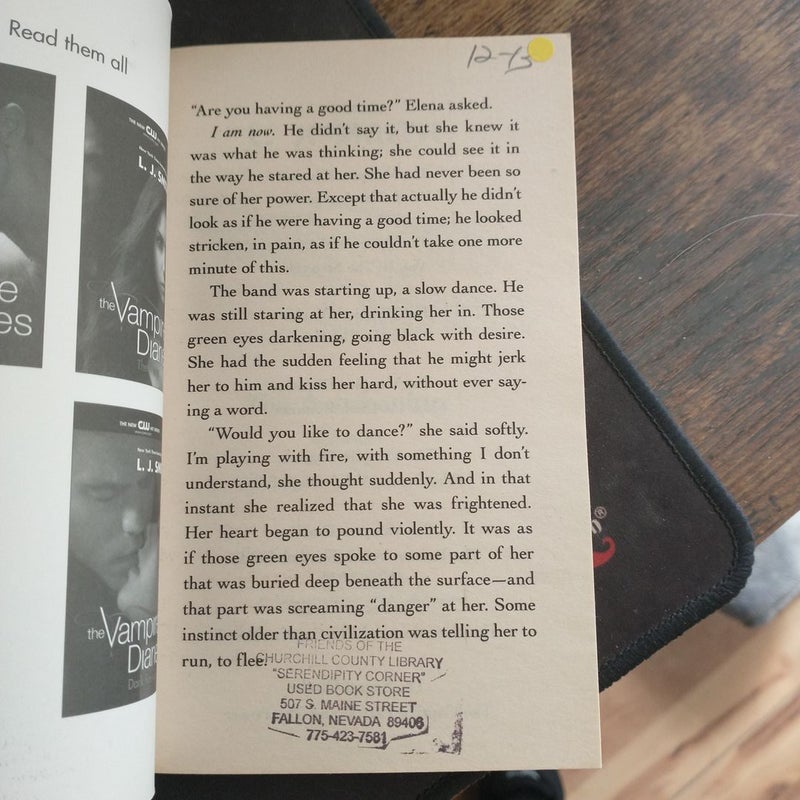 Read them all
THE NEW CW
L. J. SM
the Vampi
Diar
e
es
THE NEW CW
L. J. SM
the Vampi
Diar
12-13
"Are you having a good time?" Elena asked.
I am now. He didn't say it, but she knew it
was what he was thinking; she could see it in
the way he stared at her. She had never been so
sure of her power. Except that actually he didn't
look as if he were having a good time; he looked
stricken, in pain, as if he couldn't take one more
minute of this.
The band was starting up, a slow dance. He
was still staring at her, drinking her in. Those
green eyes darkening, going black with desire.
She had the sudden feeling that he might jerk
her to him and kiss her hard, without ever say-
ing a word.
"Would you like to dance?" she said softly.
I'm playing with fire, with something I don't
understand, she thought suddenly. And in that
instant she realized that she was frightened.
Her heart began to pound violently. It was as
if those green eyes spoke to some part of her
that was buried deep beneath the surface—and
that part was screaming "danger" at her. Some
instinct older than civilization was telling her to
run, to flee.
FRIENDS OF THE
CHURCHILL COUNTY LIBRARY
"SERENDIPITY CORNER"
USED BOOK STORE
507 S. MAINE STREET
FALLON, NEVADA 89406
775-423-7581